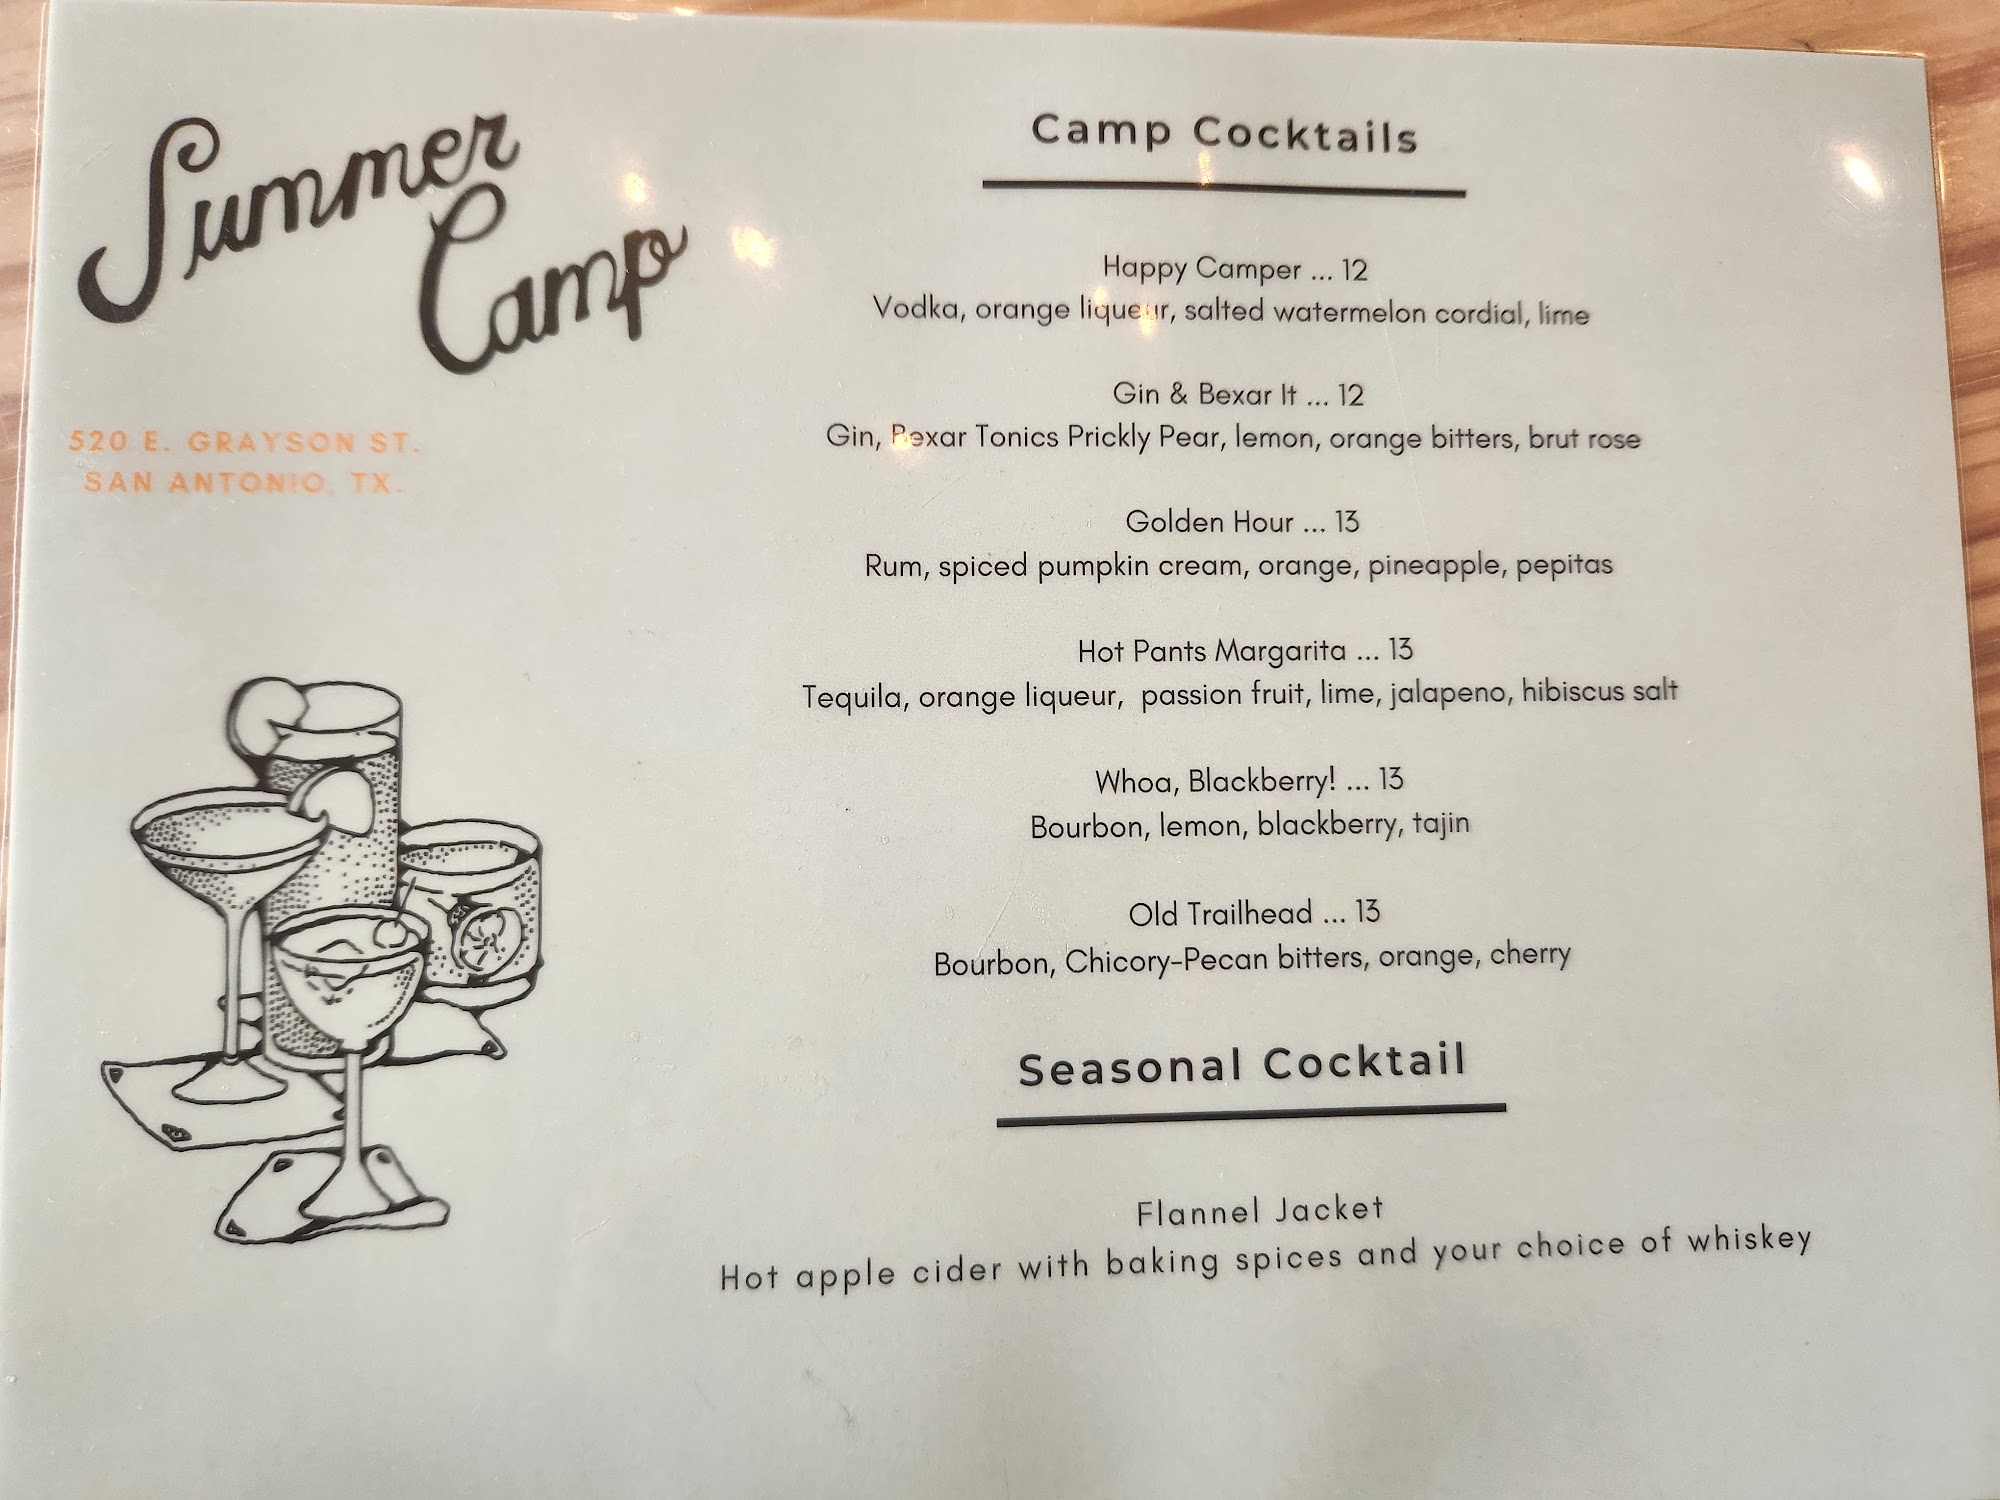 Summer
Camp
520 E. GRAYSON ST.
SAN ANTONIO, TX.
Camp Cocktails
Happy Camper ... 12
Vodka, orange liqueur, salted watermelon cordial, lime
Gin & Bexar It ... 12
Gin, Bexar Tonics Prickly Pear, lemon, orange bitters, brut rose
Golden Hour ... 13
Rum, spiced pumpkin cream, orange, pineapple, pepitas
Hot Pants Margarita ... 13
Tequila, orange liqueur, passion fruit, lime, jalapeno, hibiscus salt
Whoa, Blackberry! ... 13
Bourbon, lemon, blackberry, tajin
Old Trailhead ... 13
Bourbon, Chicory-Pecan bitters, orange, cherry
Seasonal Cocktail
Flannel Jacket
Hot apple cider with baking spices and your choice of whiskey